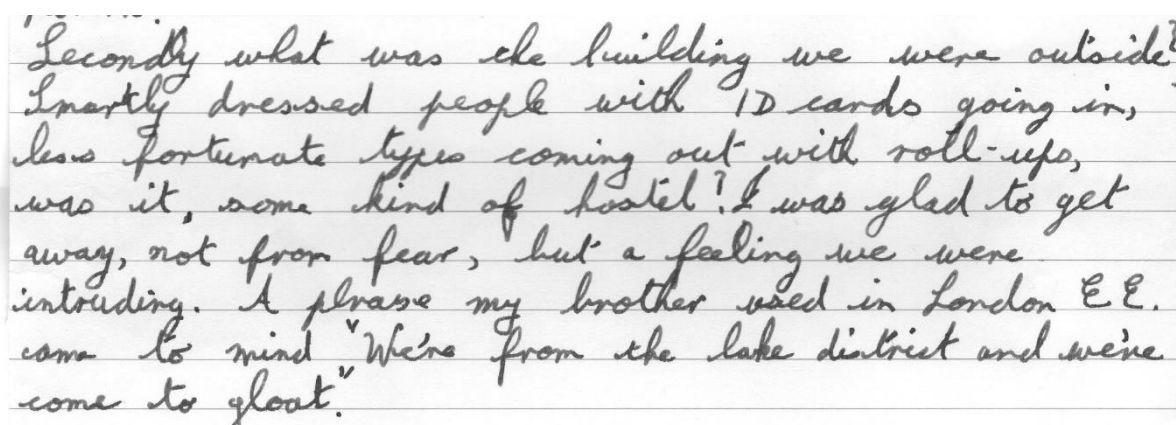 Secondly what was the building we were outside?
Smartly dressed people with ID cards going in,
less fortunate types coming out with roll-ups,
was it, some kind of hostel? I was glad to get
away, not from fear, but a feeling we were
intruding. A phrase my brother used in London E E.
came to mind "We're from the lake district and we're
come to gloat."